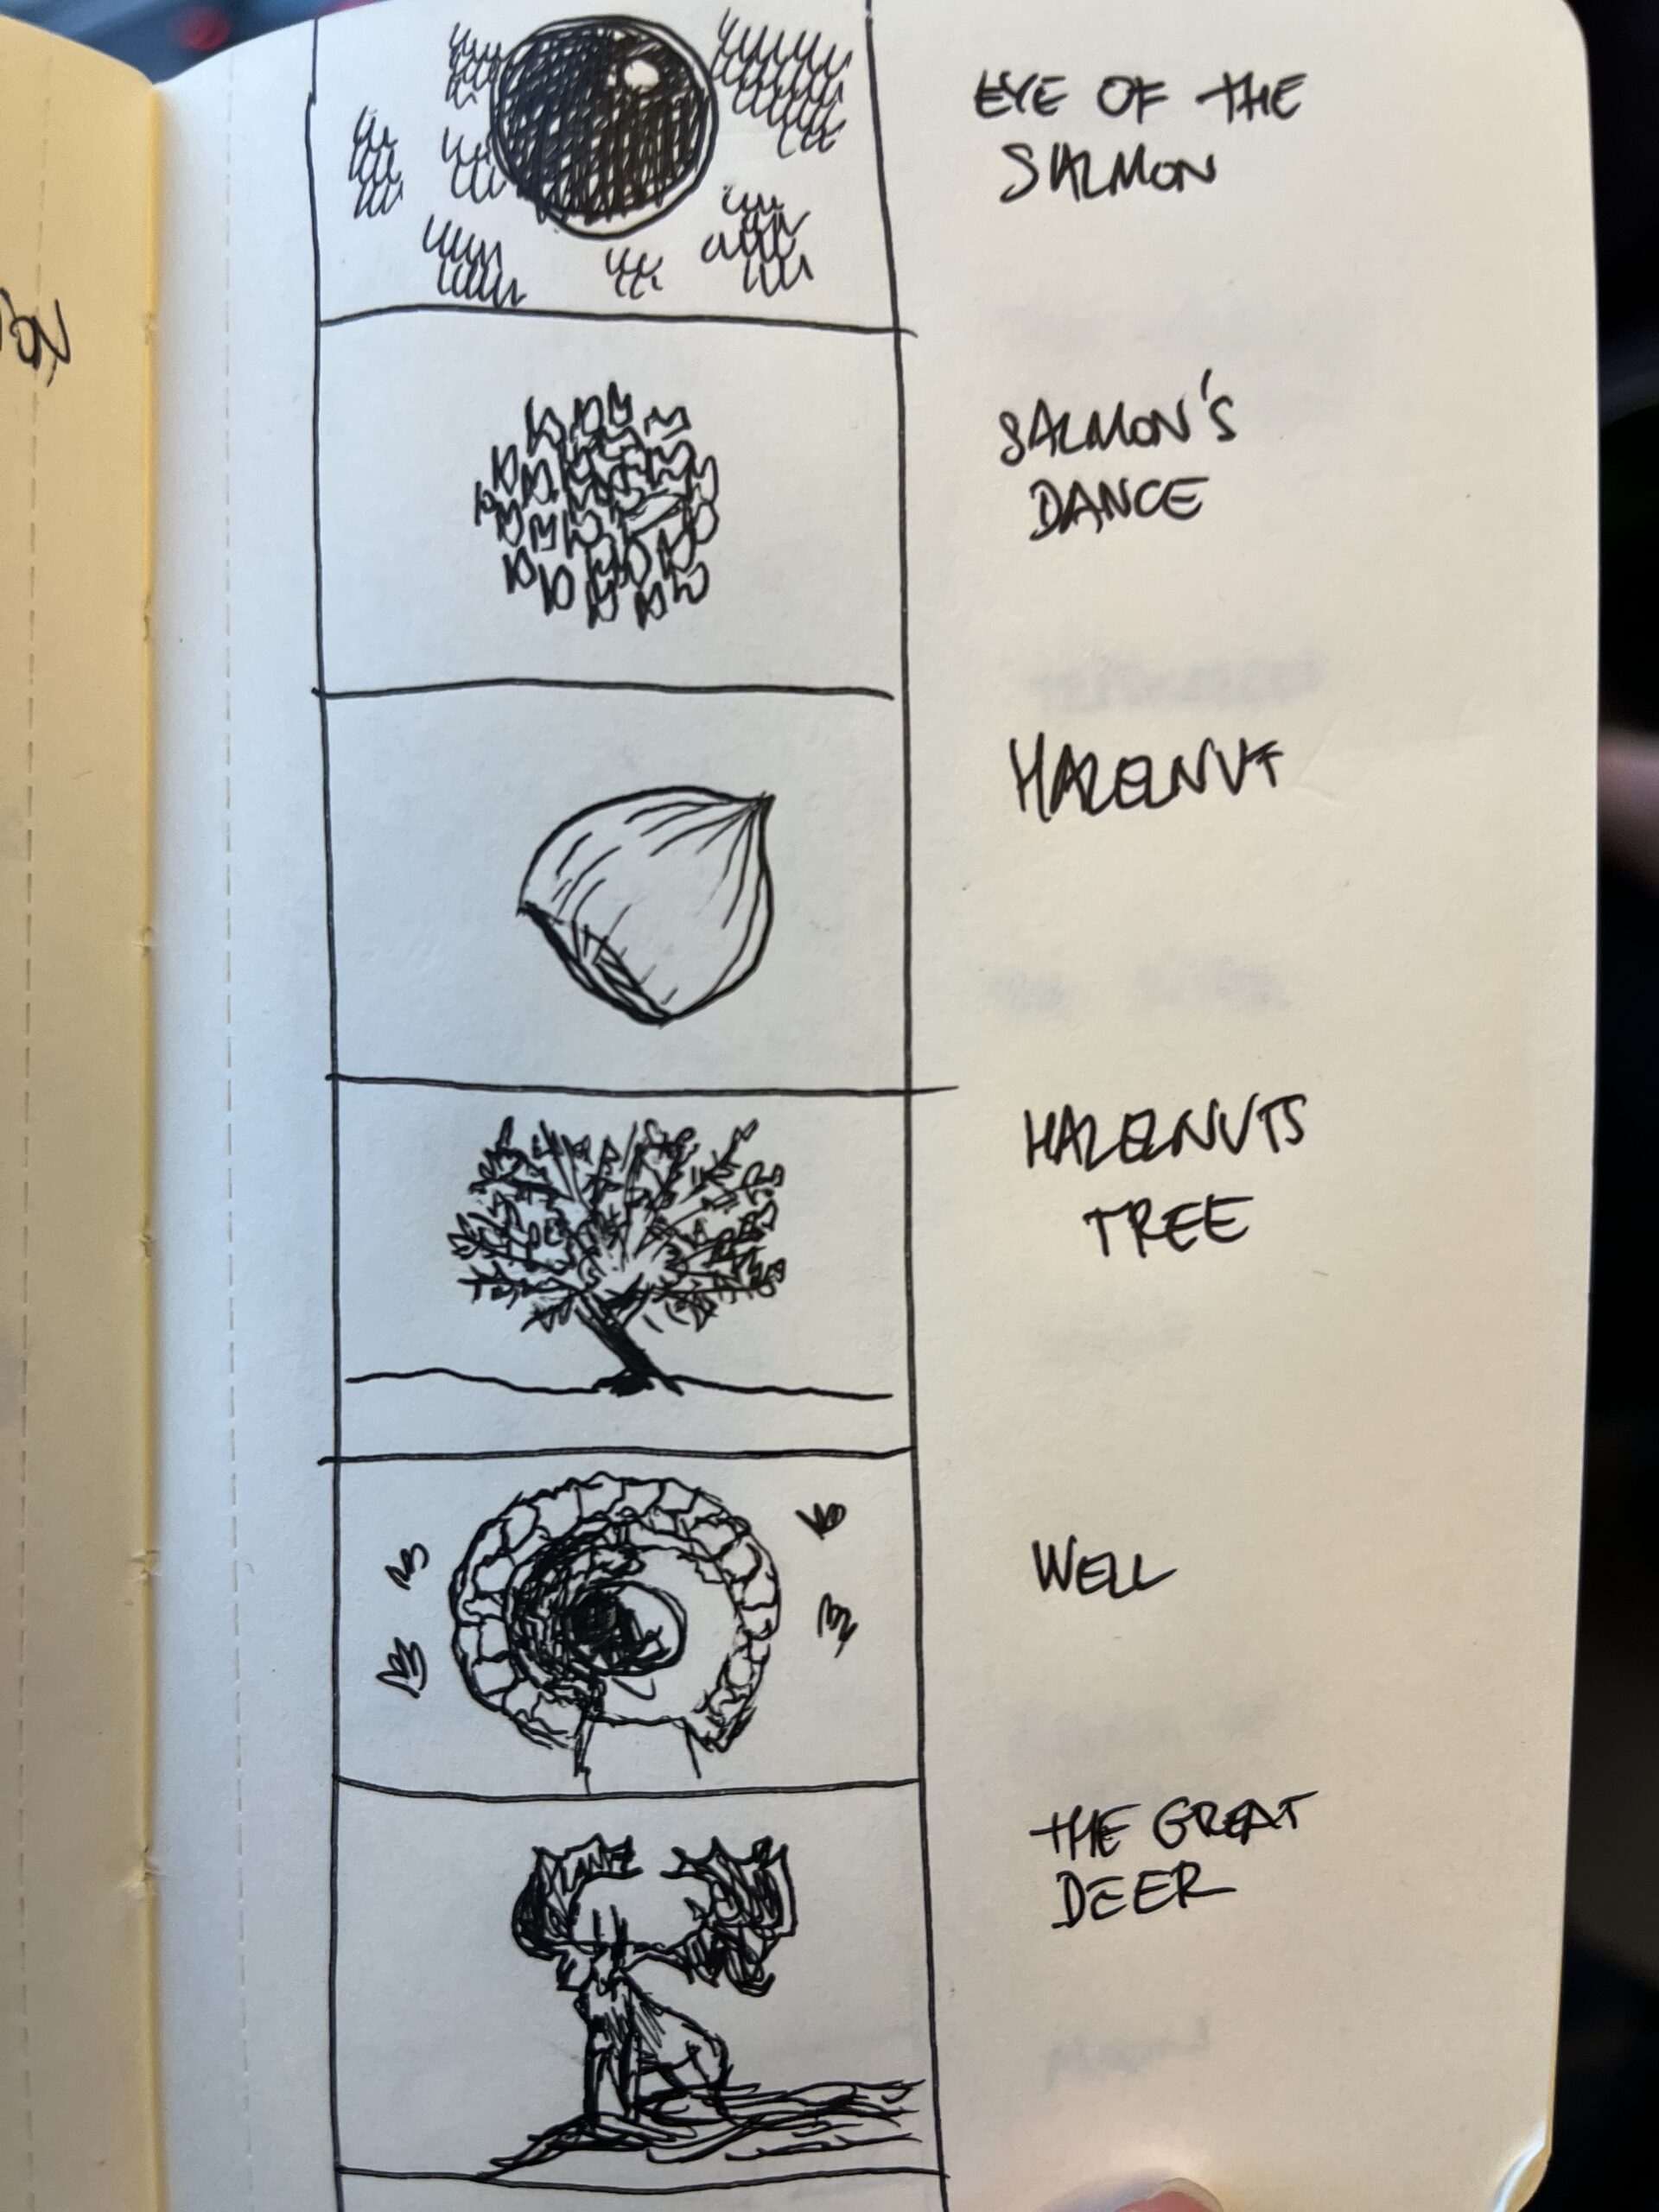 EYE OF THE
SALMON
SALMON'S
DANCE
HAZELNUT
HAZELNUTS
TREE
WELL
THE GREAT
DEER